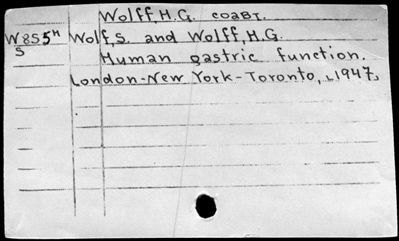 Wolff, H.G. соавт.
W855h Wolf, S. and Wolff, H.G.
S Human gastric function.
London-New York-Toronto, [1947]